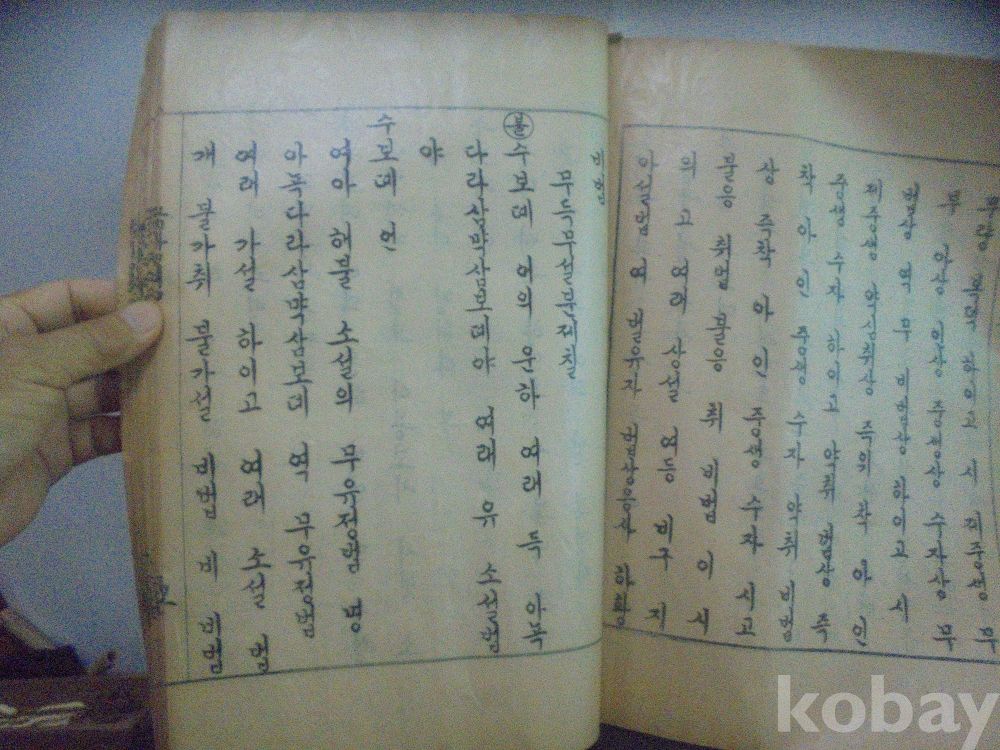 무량 복덕 하이고 시 제중생 무
부 아상 인상 중생상 수자상 무
법상 역 무 비법상 하이고 시
제중생 약심취상 즉위 착 아 인
중생 수자 하이고 약취 법상 즉
착 아 인 중생 수자 약취 비법
상 즉착 아 인 중생 수자 시고
불응 취법 불응 취 비법 이 시
의 고 여래 상설 여등 비구 지
아설법 여 벌유자 법상응사 하황
비법
무득무설분제칠
불 수보데 어의 운하 여래 득 아뇩
다라삼막삼보데야 여래 유 소설법
야
수보데 언
여아 해불 소설의 무유정법 명
아뇩다라삼막삼보데 역 무유정법
여래 가설 하이고 여래 소설 법
개 불가취 불가설 비법 비 비법
kobay